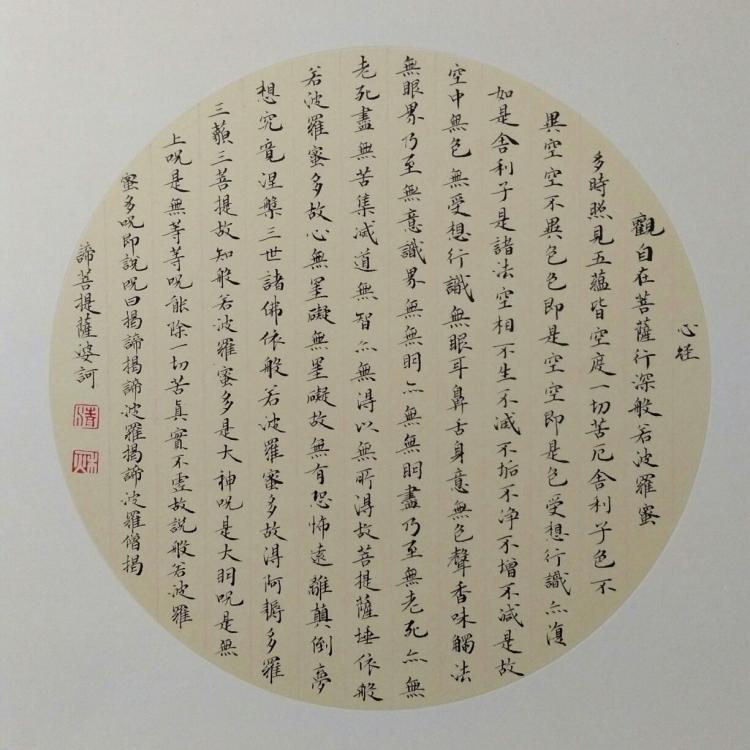 心经
觀自在菩薩行深般若波羅蜜
多時照見五蘊皆空度一切苦厄舍利子色不
異空空不異色色即是空空即是色受想行識亦復
如是舍利子是諸法空相不生不滅不垢不净不增不減是故
空中無色無受想行識無眼耳鼻舌身意無色聲香味觸法
無眼界乃至無意識界無無明亦無無明盡乃至無老死亦無
老死盡無苦集滅道無智亦無得以無所得故菩提薩埵依般
若波羅蜜多故心無罣礙無罣礙故無有恐怖遠離顛倒夢
想究竟涅槃三世諸佛依般若波羅蜜多故得阿耨多羅
三藐三菩提故知般若波羅蜜多是大神咒是大明咒是無
上咒是無等等咒能除一切苦真實不虛故說般若波羅
蜜多咒即說咒曰揭諦揭諦波羅揭諦波羅僧揭
諦菩提薩婆訶